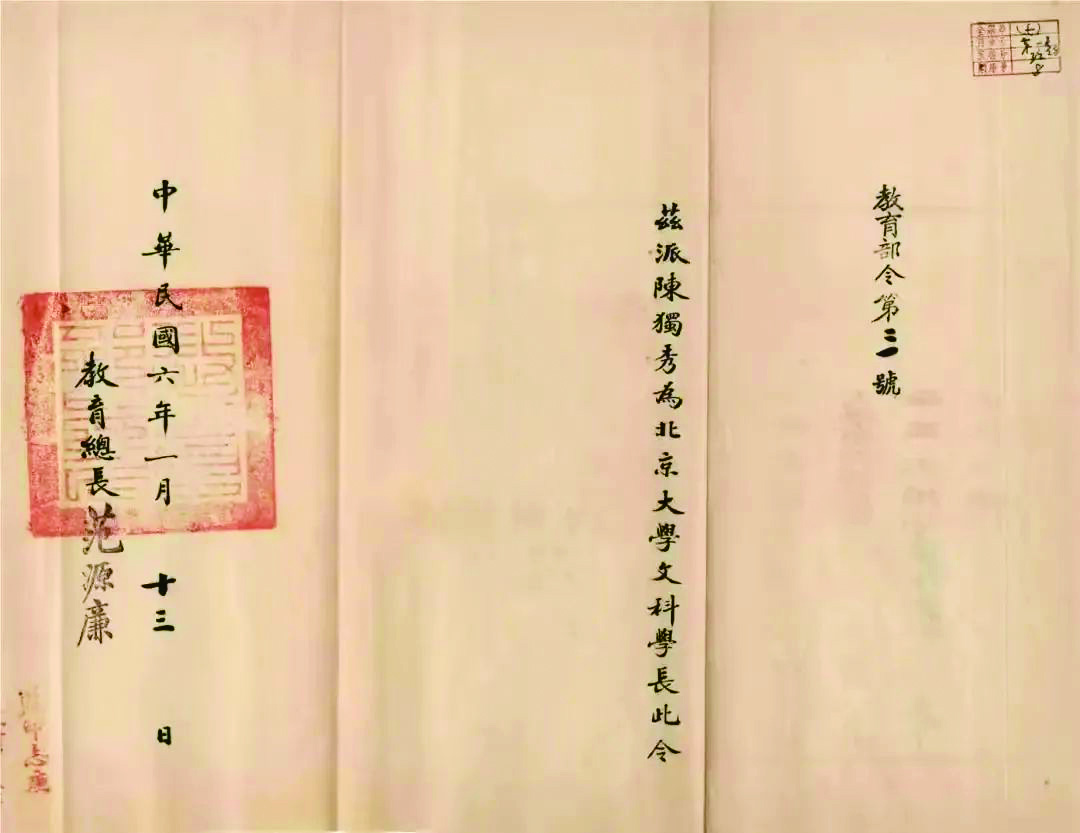 教育部令第三號
茲派陳獨秀為北京大學文科學長此令
中華民國六年一月十三日
教育總長范源廉